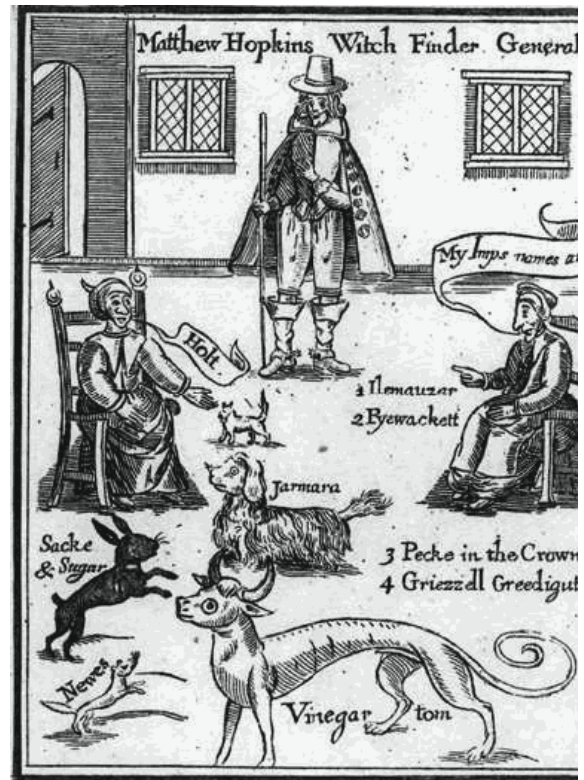 Matthew Hopkins Witch Finder General
My Imps names are
Holt
1 Ilemauzar
2 Pyewackett
Jarmara
Sacke
& Sugar
3 Pecke in the Crown
4 Griezzell Greedigut
Newes
Vinegar tom